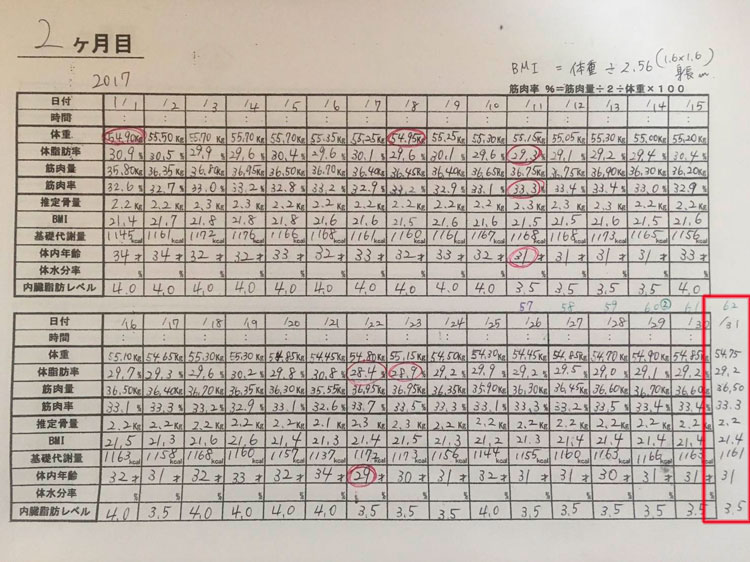 2ヶ月目
BMI = 体重 ÷ 2.56 (1.6×1.6)
身長 m
筋肉率 %=筋肉量÷2÷体重×100
2017
日付 1/1 /2 /3 /4 /5 /6 /7 /8 /9 /10 /11 /12 /13 /14 /15
時間 : : : : : : : : : : : : : : :
体重 54.90Kg 55.50Kg 55.70Kg 55.70Kg 55.70Kg 55.35Kg 55.25Kg 54.95Kg 55.25Kg 55.30Kg 55.15Kg 55.05Kg 55.30Kg 55.00Kg 55.20Kg
体脂肪率 30.9% 30.5% 29.9% 29.6% 30.4% 29.6% 30.1% 29.6% 30.1% 29.6% 29.3% 29.1% 29.2% 29.4% 30.4%
筋肉量 35.80Kg 36.35Kg 36.80Kg 36.95Kg 36.50Kg 36.70Kg 36.40Kg 36.45Kg 36.40Kg 36.60Kg 36.75Kg 36.75Kg 36.90Kg 36.30Kg 36.20Kg
筋肉率 32.6% 32.7% 33.0% 33.2% 32.8% 33.2% 32.9% 33.2% 32.9% 33.1% 33.3% 33.4% 33.4% 33.0% 32.9%
推定骨量 2.2Kg 2.2Kg 2.3Kg 2.3Kg 2.2Kg 2.2Kg 2.2Kg 2.2Kg 2.2Kg 2.2Kg 2.3Kg 2.2Kg 2.3Kg 2.2Kg 2.2Kg
BMI 21.4 21.7 21.8 21.8 21.8 21.6 21.6 21.5 21.6 21.6 21.5 21.5 21.6 21.5 21.6
基礎代謝量 1145kcal 1161kcal 1172kcal 1176kcal 1166kcal 1168kcal 1161kcal 1160kcal 1161kcal 1167kcal 1168kcal 1168kcal 1173kcal 1165kcal 1156kcal
体内年齢 34才 34才 32才 32才 33才 32才 33才 32才 33才 32才 31才 31才 31才 31才 33才
体水分率 % % % % % % % % % % % % % % %
内臓脂肪レベル 4.0 4.0 4.0 4.0 4.0 4.0 4.0 4.0 4.0 4.0 3.5 3.5 3.5 3.5 4.0
57 58 59 60② 61 62
日付 /16 /17 /18 /19 /20 /21 /22 /23 /24 /25 /26 /27 /28 /29 /30 /31
時間 : : : : : : : : : : : : : : :
体重 55.10Kg 54.65Kg 55.30Kg 55.30Kg 54.85Kg 54.45Kg 54.80Kg 55.15Kg 54.50Kg 54.30Kg 54.45Kg 54.85Kg 54.70Kg 54.90Kg 54.85Kg 54.75
体脂肪率 29.7% 29.3% 29.6% 30.2% 29.8% 30.8% 28.4% 28.9% 29.2% 29.9% 29.2% 29.5% 29.0% 29.1% 29.2% 29.2
筋肉量 36.50Kg 36.40Kg 36.70Kg 36.35Kg 36.30Kg 35.55Kg 36.95Kg 36.95Kg 36.35Kg 35.90Kg 36.30Kg 36.45Kg 36.60Kg 36.70Kg 36.60Kg 36.50
筋肉率 33.1% 33.3% 33.2% 32.9% 33.1% 32.6% 33.7% 33.5% 33.3% 33.1% 33.3% 33.2% 33.5% 33.4% 33.4% 33.3
推定骨量 2.2Kg 2.2Kg 2.2Kg 2.2Kg 2.2Kg 2.1Kg 2.3Kg 2.3Kg 2.2Kg 2.2Kg 2.2Kg 2.2Kg 2.2Kg 2.2Kg 2.2Kg 2.2
BMI 21.5 21.3 21.6 21.6 21.4 21.3 21.4 21.5 21.3 21.2 21.3 21.4 21.4 21.4 21.4 21.4
基礎代謝量 1163kcal 1158kcal 1168kcal 1160kcal 1157kcal 1137kcal 1172kcal 1173kcal 1156kcal 1144kcal 1155kcal 1160kcal 1163kcal 1166kcal 1163kcal 1161
体内年齢 32才 31才 32才 33才 32才 34才 29才 30才 31才 32才 31才 31才 30才 31才 31才 31
体水分率 % % % % % % % % % % % % % % %
内臓脂肪レベル 4.0 3.5 4.0 4.0 4.0 4.0 3.5 3.5 3.5 4.0 3.5 3.5 3.5 3.5 3.5 3.5